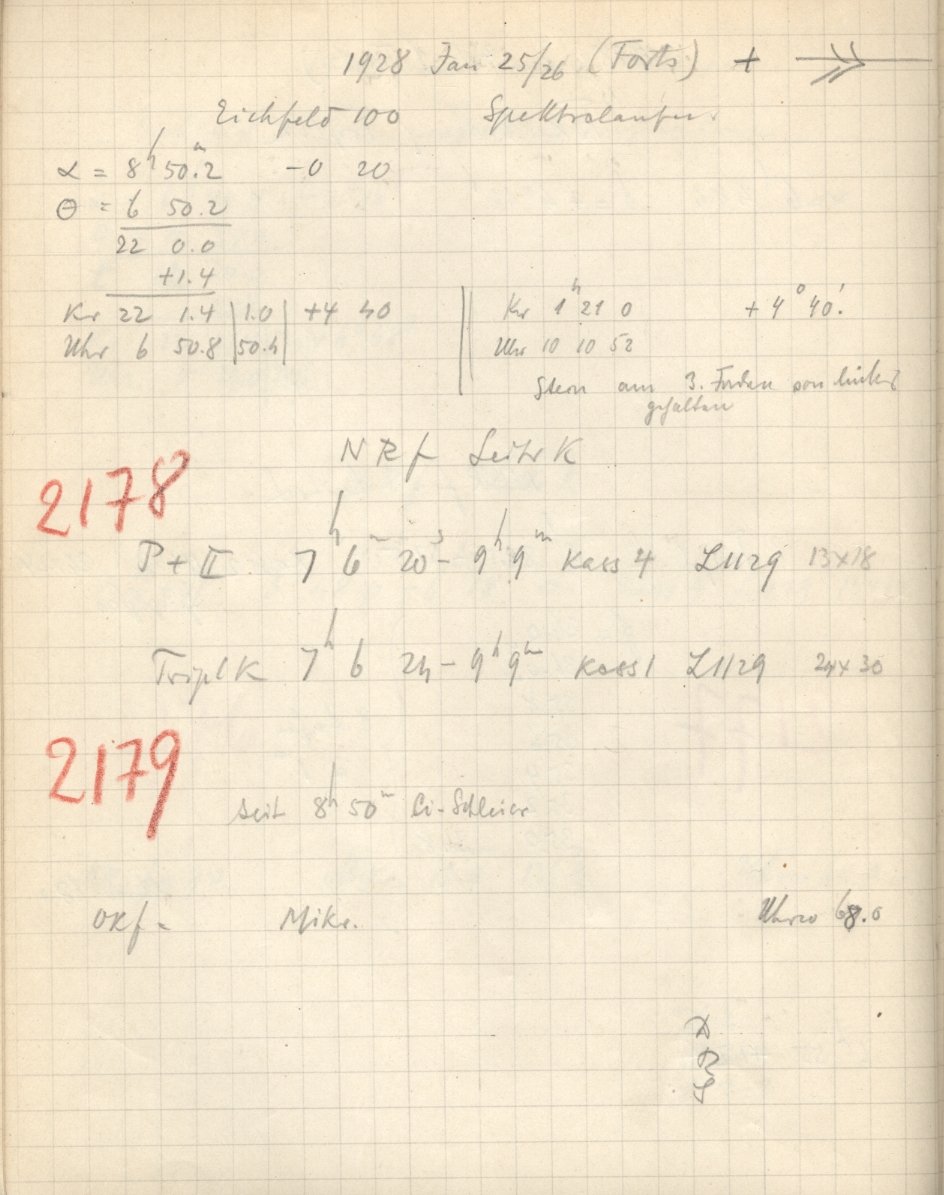 1928 Jan 25/26 (Forts) +
Eichfeld 100 Spektralaufn.
α = 8ʰ 50.ᵐ2 -0 20
Θ = 6 50.2
22 0.0
+1.4
Kr 22 1.4 | 1.0 | +4 40
Uhr 6 50.8 | 50.4 |
Kr 1ʰ 21 0 +4° 40'.
Uhr 10 10 52
Stern am 3. Faden von links
gehalten
N R f Leitr K
2178
P + II 7ʰ 6ᵐ 20ˢ - 9ʰ 9ᵐ Kass 4 L1129 13x18
Tripl K 7ʰ 6 24 - 9ʰ 9ᵐ Kass 1 L1129 24x30
2179
seit 8ʰ 50ᵐ Ci-Schleier
OKf - Mikr. 68.0